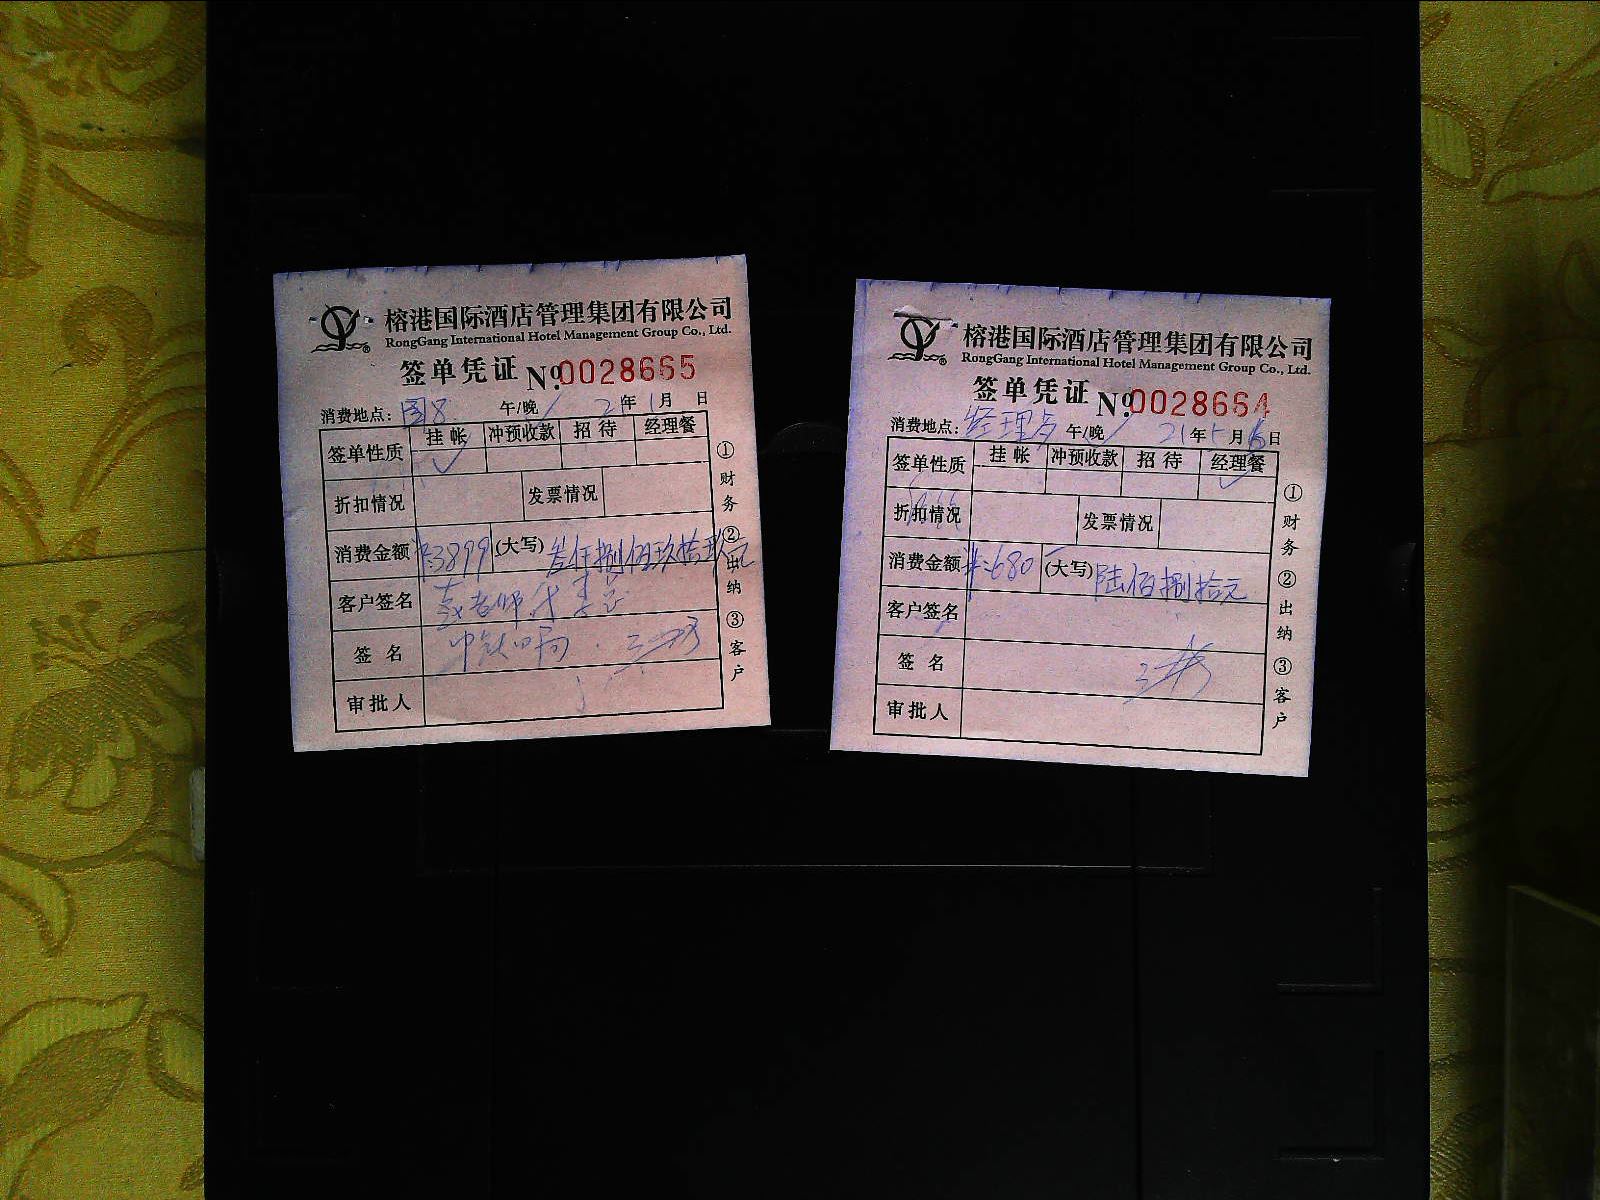 榕港国际酒店管理集团有限公司
RongGang International Hotel Management Group Co., Ltd.
签单凭证 No. 0028665
消费地点: 国8 午/晚 21年1月 日
签单性质 挂帐 冲预收款 招待 经理餐
折扣情况 发票情况
消费金额 ¥:3899 (大写) 叁仟捌佰玖拾玖元
客户签名
签名
审批人
①财务 ②出纳 ③客户
榕港国际酒店管理集团有限公司
RongGang International Hotel Management Group Co., Ltd.
签单凭证 No. 0028664
消费地点: 经理 午/晚 21年5月 日
签单性质 挂帐 冲预收款 招待 经理餐
折扣情况 发票情况
消费金额 ¥:680 (大写) 陆佰捌拾元
客户签名
签名
审批人
①财务 ②出纳 ③客户